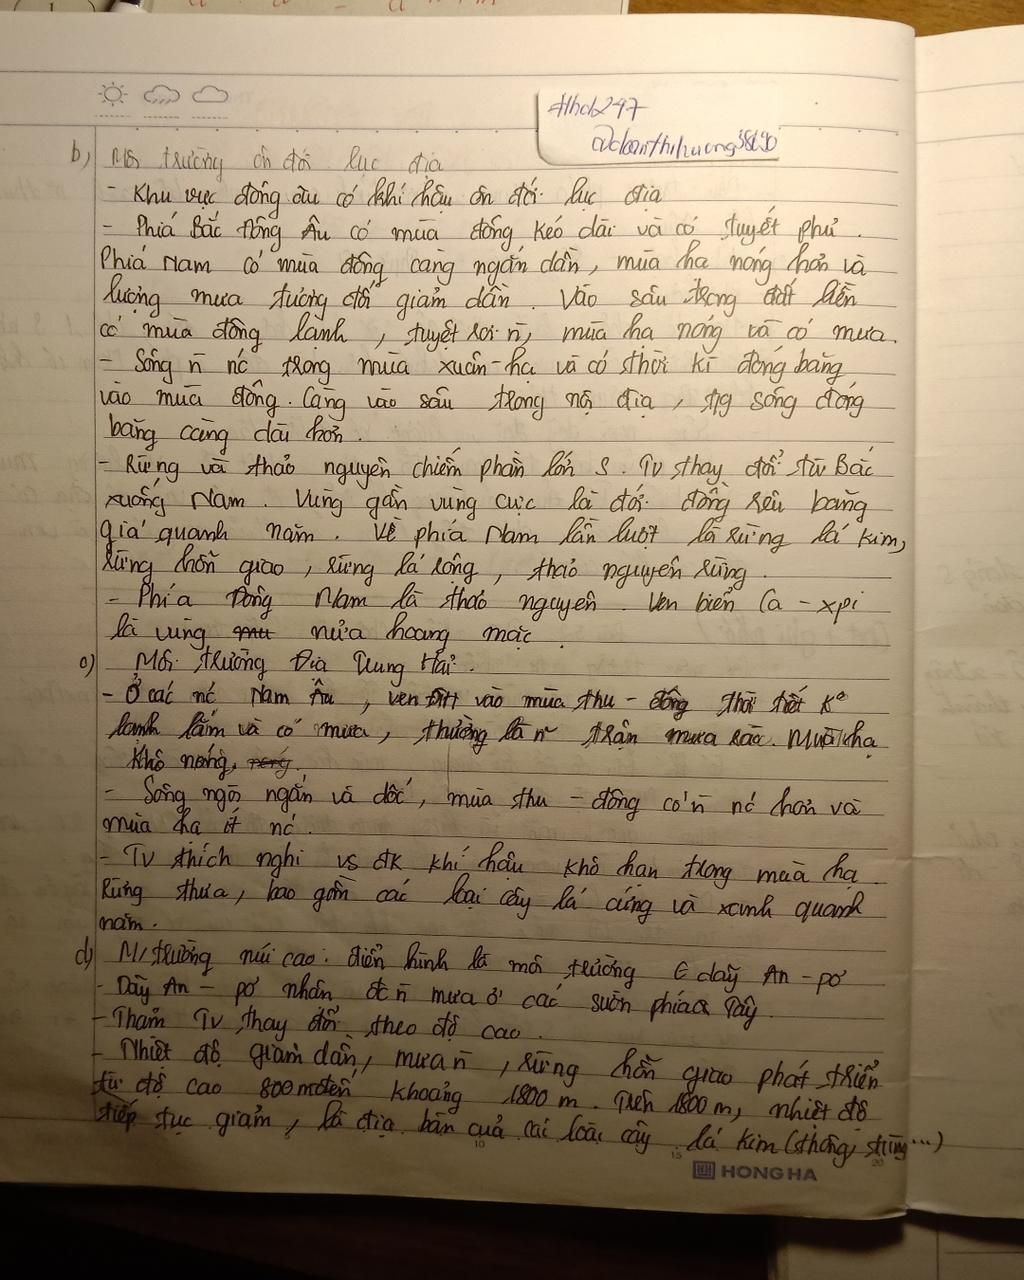 #hdb247
@doanthihuong38690
b) Môi trường ôn đới lục địa
- Khu vực đông âu có khí hậu ôn đới lục địa
- Phiá Bắc Đông Âu có mùa đông kéo dài và có tuyết phủ.
Phiá Nam có mùa đông càng ngắn dần, mùa hạ nóng hơn và
lượng mưa tương đối giảm dần. Vào sâu trong đất liền
có mùa đông lạnh, tuyết rơi n̄, mùa hạ nóng và có mưa.
- Sông n̄ nc trong mùa xuân-hạ và có thời kì đóng băng
vào mùa đông. Càng vào sâu trong nội địa, tg sông đóng
băng càng dài hơn.
- Rừng và thảo nguyên chiếm phần lớn S. TV thay đổi từ Bắc
xuống Nam. Vùng gần vùng cực là đới đồng rêu băng
giá quanh năm. Về phía Nam lần lượt là rừng lá kim,
rừng hỗn giao, rừng lá rộng, thảo nguyên rừng.
- Phía Đông Nam là thảo nguyên. Ven biển Ca-xpi
là vùng nửa hoang mạc.
c) Môi trường Địa Trung Hải.
- Ở các nc Nam Âu, ven ĐTH vào mùa thu - đông thời tiết Ko
lạnh lắm và có mưa, thường là n~ trận mưa rào. Mùa hạ
khô nóng.
- Sông ngòi ngắn và dốc, mùa thu - đông có n̄ nc hơn và
mùa hạ ít nc.
- TV thích nghi vs đk khí hậu khô hạn trong mùa hạ.
Rừng thưa, bao gồm các loại cây lá cứng và xanh quanh
năm.
d) M/trường núi cao: điển hình là môi trường ∈ dãy An-pơ
- Dãy An-pơ nhận đc n̄ mưa ở các sườn phía Tây.
- Thảm TV thay đổi theo độ cao.
- Nhiệt độ giảm dần, mưa n̄, rừng hỗn giao phát triển
từ độ cao 800m đến khoảng 1800 m. Trên 1800 m, nhiệt độ
tiếp tục giảm, là địa bàn quả cái loài cây lá kim (thông, tùng...)
HONG HA